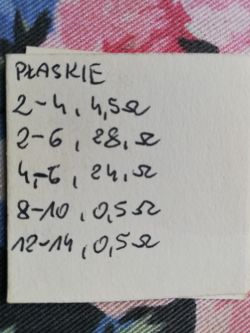 PŁASKIE
2-4, 4,5Ω
2-6, 28, Ω
4,-6, 24, Ω
8-10, 0,5Ω
12-14, 0,5Ω